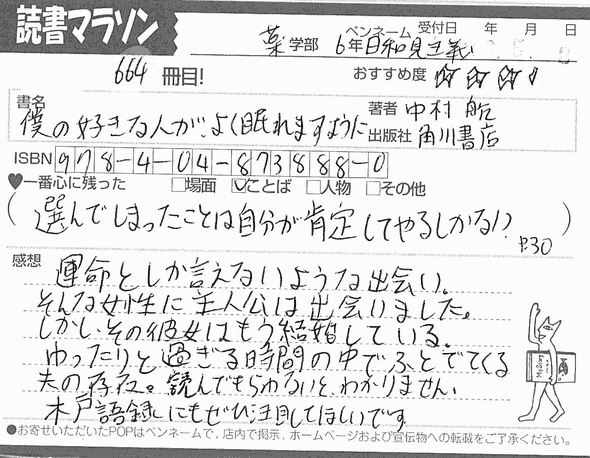 読書マラソン
薬学部 ペンネーム 6年日和見主義 受付日 年 月 日
664冊目! おすすめ度 ☆☆☆
書名 僕の好きな人が、よく眠れますように
著者 中村 航
出版社 角川書店
ISBN 978-4-04-873888-0
♥一番心に残った □場面 ☑ことば □人物 □その他
(選んでしまったことは自分が肯定してやるしかない?)
P.30
感想
運命としか言えないような出会い。
そんな女性に主人公は出会いました。
しかし、その彼女はもう結婚している。
ゆったりと過ぎる時間の中でふとでてくる
夫の存在。読んでもらわないと、わかりません。
木戸語録にもぜひ注目してほしいです。
●お寄せいただいたPOPはペンネームで、店内で掲示、ホームページおよび宣伝物への転載をご了承ください。